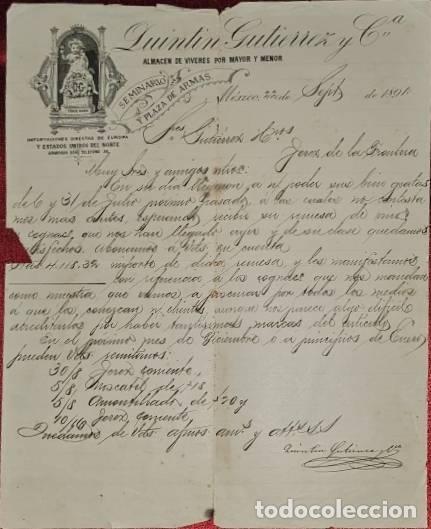 Quintin Gutierrez y Cia
ALMACEN DE VIVERES POR MAYOR Y MENOR
SEMINARIO
Y PLAZA DE ARMAS
IMPORTACIONES DIRECTAS DE EUROPA
Y ESTADOS UNIDOS DEL NORTE
México, 22 de Sept de 1891
Sres Gutiérrez Hnos
Jerez de la Frontera
Muy Srs y amigos ntros:
En su dia llegaron a nt poder sus bien gratas
de 6 y 31 de Julio próximo pasado, a las cuales no contesta
mos mas antes, esperando recibir su remesa de vinos
cognac, que nos han llegado ayer y de su clase quedamos
satisfechos abonamos a Vds. en cuenta
4.118.32 importe de dicha remesa, y les manifestamos
con referencia a los cognacs que nos mandan
como muestra que vamos a procurar por todos los medios
a que los conozcan ntros clientes, aunque nos parece algo dificil
acreditarlos por haber tantísimas marcas del artículo.
En el próximo mes de Diciembre o a principios de Enero
pueden Vds remitirnos:
30/8 Jerez corriente
5/8 Moscatel de 18
5/8 Amontillado de $20 y
10/16 Jerez, corriente
Quedamos de Vds afmos ams y
Quintin Gutierrez y Cia
todocoleccion.net